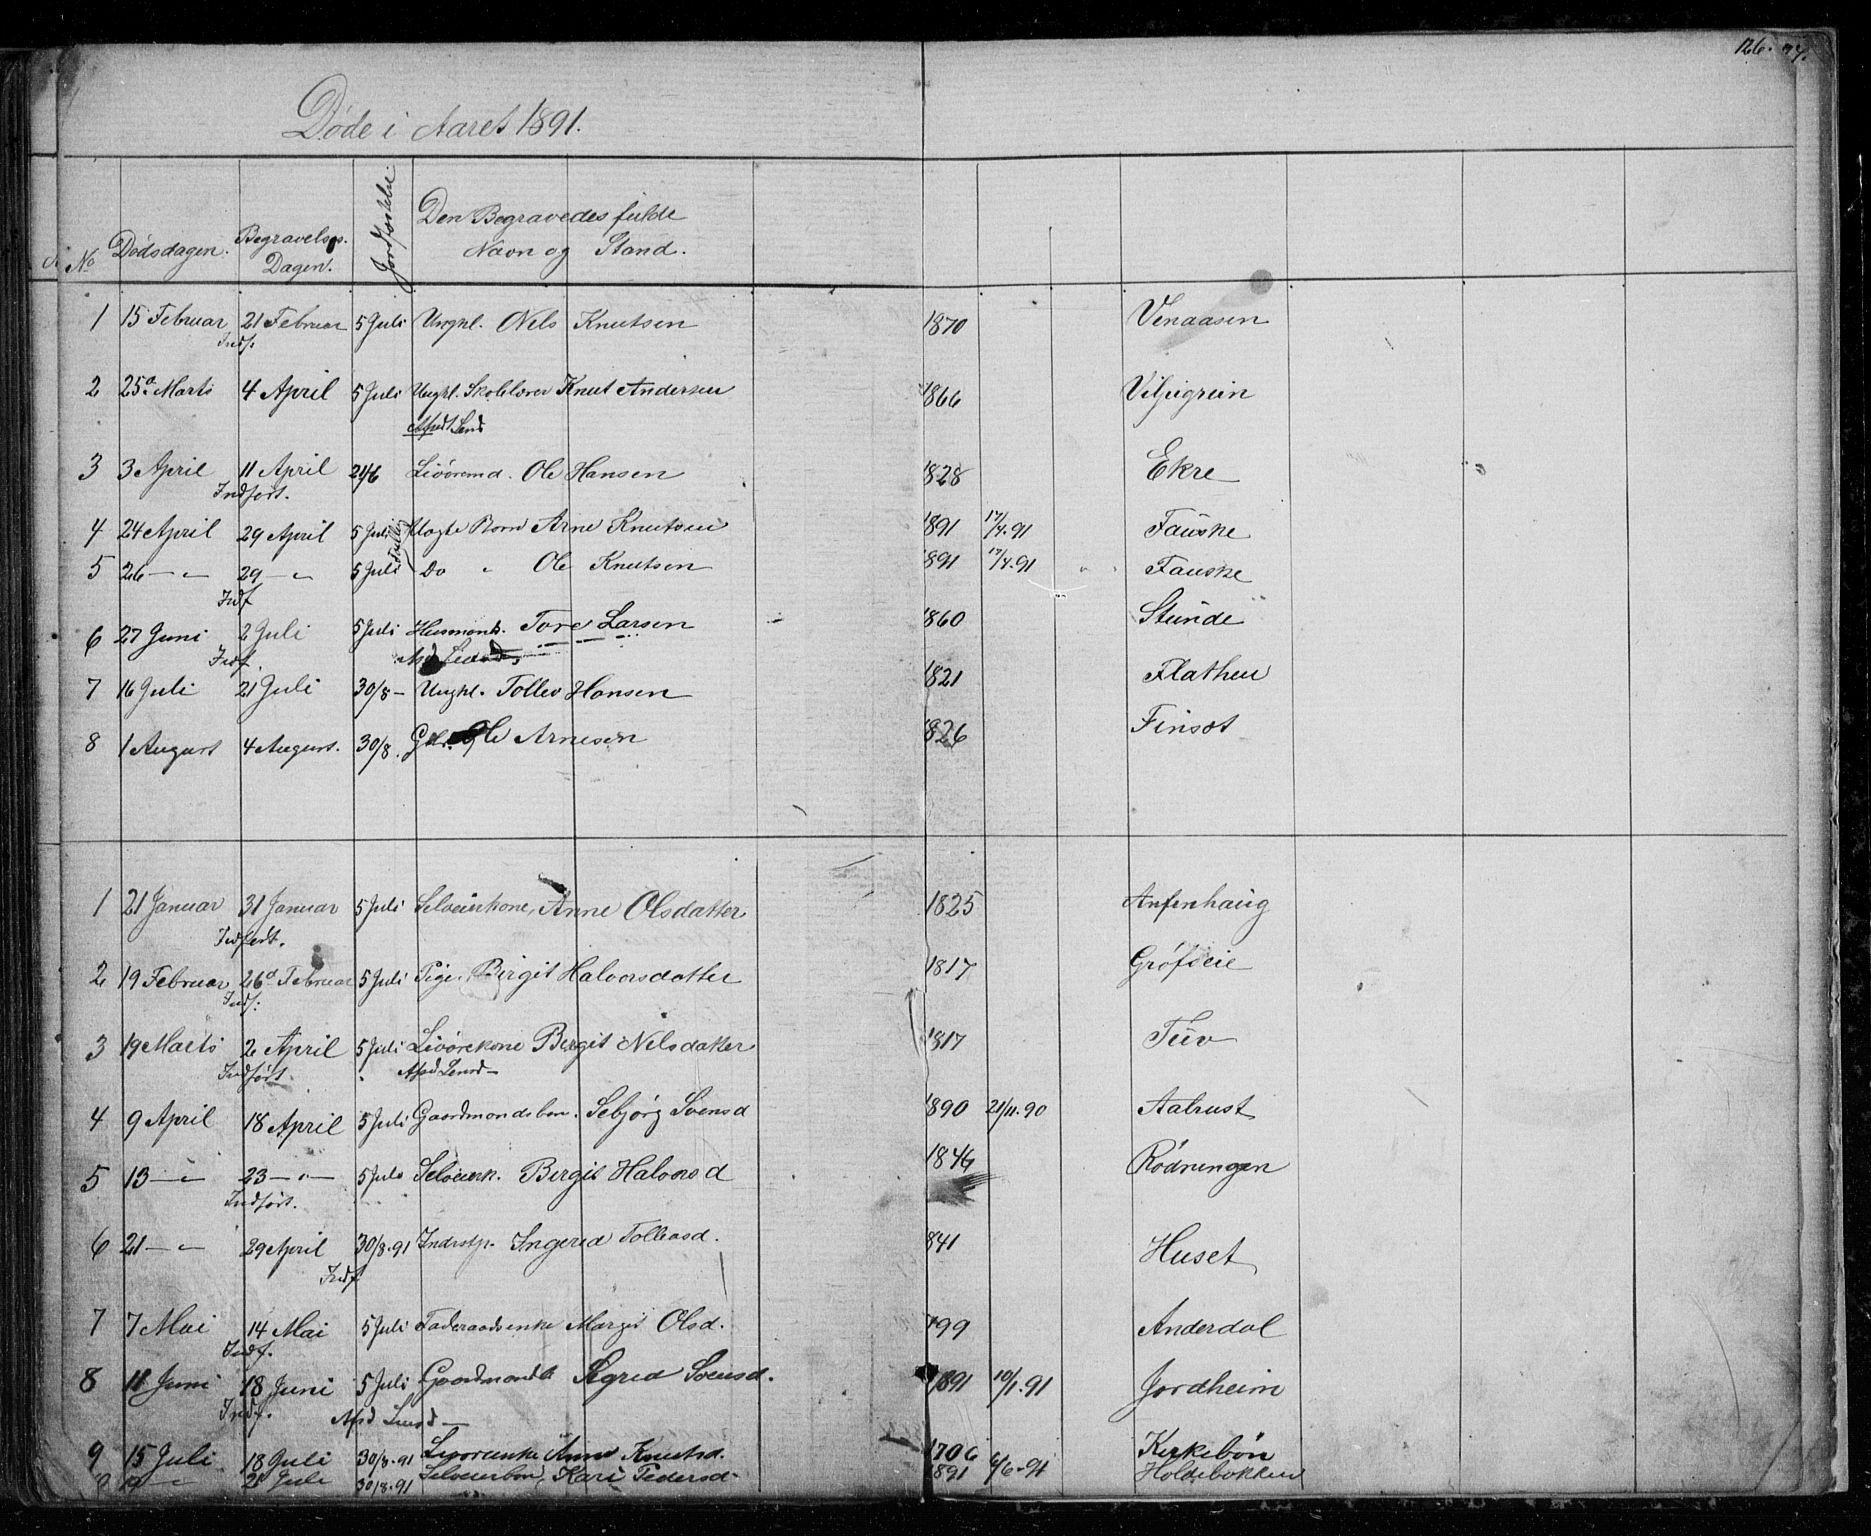 126.
Døde i Aaret 1891.
No Dødsdagen. Begravelses- Dagen. Jordfæstelse Den Begravedes fulde Navn og Stand.
1 15 Februar 21 Februar 5 Juli Ungkl. Nels Knutsen 1870 Venaasen
Indf.
2 25 Marts 4 April 5 Juli Ungkl. Skolelærer Knut Andersen 1866 Viljugrein
Lensd
3 3 April 11 April 21/6 Livøremd. Ole Hansen 1828 Ekre
Indført.
4 24 April 29 April 5 Juli Uægte Barn Arne Knutsen 1891 17/4.91 Fauske
5 26 — " 29 — " 5 Juli Do " Ole Knutsen 1891 17/4.91 Fauske
Indf
6 27 Juni 2 Juli 5 Juli Husmands. Tore Larsen 1860 Stunde
Indf.
7 16 Juli 21 Juli 30/8 — Ungkl. Tollev Hansen 1821 Flathen
8 1 August 4 August. 30/8. Ole Arnesen 1826 Finset
1 21 Januar 31 Januar 5 Juli Selveierkone, Anne Olsdatter 1825 Anfenhaug
Indført.
2 19 Februar 26 Februar 5 Juli Pige. Birgit Halvorsdatter 1817
Indf.
3 19 Marts 2 April 5 Juli Livørekone Birgit Nilsdatter 1817 Tuv
Indført Afsd Lensd —
4 9 April 18 April 5 Juli Gaardmandsbarn. Sebjørg Svensd 1890 21/11.90 Aalrust
5 13 — " 23 — " — 5 Juli Selveierk. Birgit Halvorsd 1846 Rødningen
Indført.
6 21 — " 29 April 30/8.91 Inderstp. Ingerid Tollevsd. 841 Huset
Indf
7 7 Mai 14 Mai 5 Juli Føderaadsenke Margit Olsd. 799 Anderdal
Indf.
8 11 Juni 18 Juni 5 Juli Gaardmandsb Sigrid Svensd. 1891 10/1.91 Jordheim
Indf. Afsd Lensd —
9 15 Juli 18 Juli 30/8.91 Livøreenke Anne Knutsd. Kirkebøn
19 — " 21 Juli 30/8.91 Selveierbarn, Kari Pedersd. 1891 6/6-91 Holdebakken